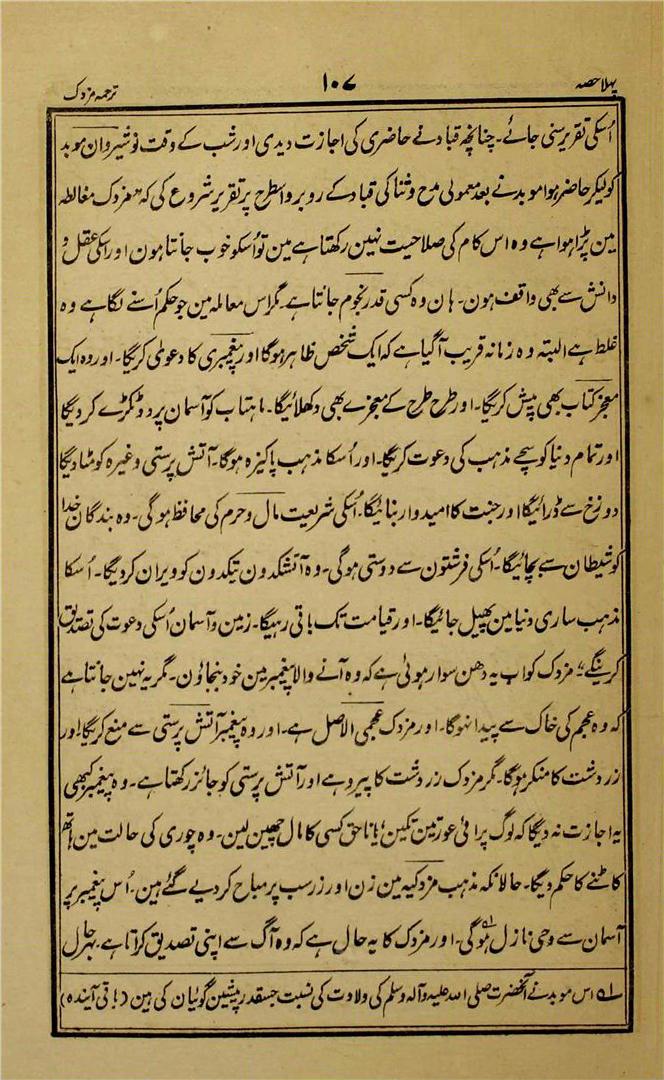 پہلا حصہ ۱۰۷ ترجمہ مزدک
اُسکی تقریر سنی جائے۔ چنانچہ قباد نے حاضری کی اجازت دیدی اور شب کے وقت نوشیروان موبد
کو لیکر حاضر ہوا موبد نے بعد معمولی مدح و ثنا کی قباد کے روبرو اسطرح پر تقریر شروع کی کہ "مزدک مغالطہ
مین پڑا ہوا ہے وہ اس کام کی صلاحیت نہین رکھتا ہے مین تو اُسکو خوب جانتا ہون اور اسکی عقل و
دانش سے بھی واقف ہون۔ ہان وہ کسی قدر نجوم جانتا ہے۔ مگر اس معاملہ مین جو حکم اُسنے لگا ہے وہ
غلط ہے البتہ وہ زمانہ قریب آگیا ہے کہ ایک شخص ظاہر ہوگا اور پیغمبری کا دعویٰ کریگا۔ اور وہ ایک
معجز کتاب بھی پیش کریگا۔ اور طرح طرح کے معجزے بھی دکھلائیگا۔ ماہتاب کو آسمان پر دو ٹکڑے کر دیگا
اور تمام دنیا کو سچے مذہب کی دعوت کریگا۔ اور اُسکا مذہب پاکیزہ ہوگا۔ آتش پرستی وغیرہ کو مٹا دیگا
دوزخ سے ڈرائیگا اور جنت کا امیدوار بنائیگا۔ اُسکی شریعت مال و حرم کی محافظ ہوگی۔ وہ بندگان خدا
کو شیطان سے بچائیگا۔ اُسکی فرشتون سے دوستی ہوگی۔ وہ آتشکدون تبکدون کو ویران کر دیگا۔ اُسکا
مذہب ساری دنیا مین پھیل جائیگا۔ اور قیامت تک باقی رہیگا۔ زمین و آسمان اُسکی دعوت کی تصدیق
کرینگے" مزدک کو اب یہ دھن سوار ہوئی ہے کہ وہ آنے والا پیغمبر مین خود بنجاؤن۔ مگر یہ نہین جانتا ہے
کہ وہ عجم کی خاک سے پیدا نہوگا۔ اور مزدک عجمی الاصل ہے۔ اور وہ پیغمبر آتش پرستی سے منع کریگا اور
زردشت کا منکر ہوگا۔ مگر مزدک زردشت کا پیرو ہے اور آتش پرستی کو جائز رکھتا ہے۔ وہ پیغمبر کبھی
یہ اجازت نہ دیگا کہ لوگ پرائی عورتین تکین، یا ناحق کسی کا مال چھین لین۔ وہ چوری کی حالت مین ہاتھ
کاٹنے کا حکم دیگا۔ حالانکہ مذہب مزدکیہ مین زن اور زر سب پر مباح کر دیے گئے ہین۔ اُس پیغمبر پر
آسمان سے وحی نازل ہوگی۔ اور مزدک کا یہ حال ہے کہ وہ آگ سے اپنی تصدیق کراتا ہے۔ بہرحال
لہ اس موبد نے آنحضرت صلی اللہ علیہ وآلہ وسلم کی ولادت کی نسبت جسقدر پیشین گوئیان کی ہین (باقی آیندہ)